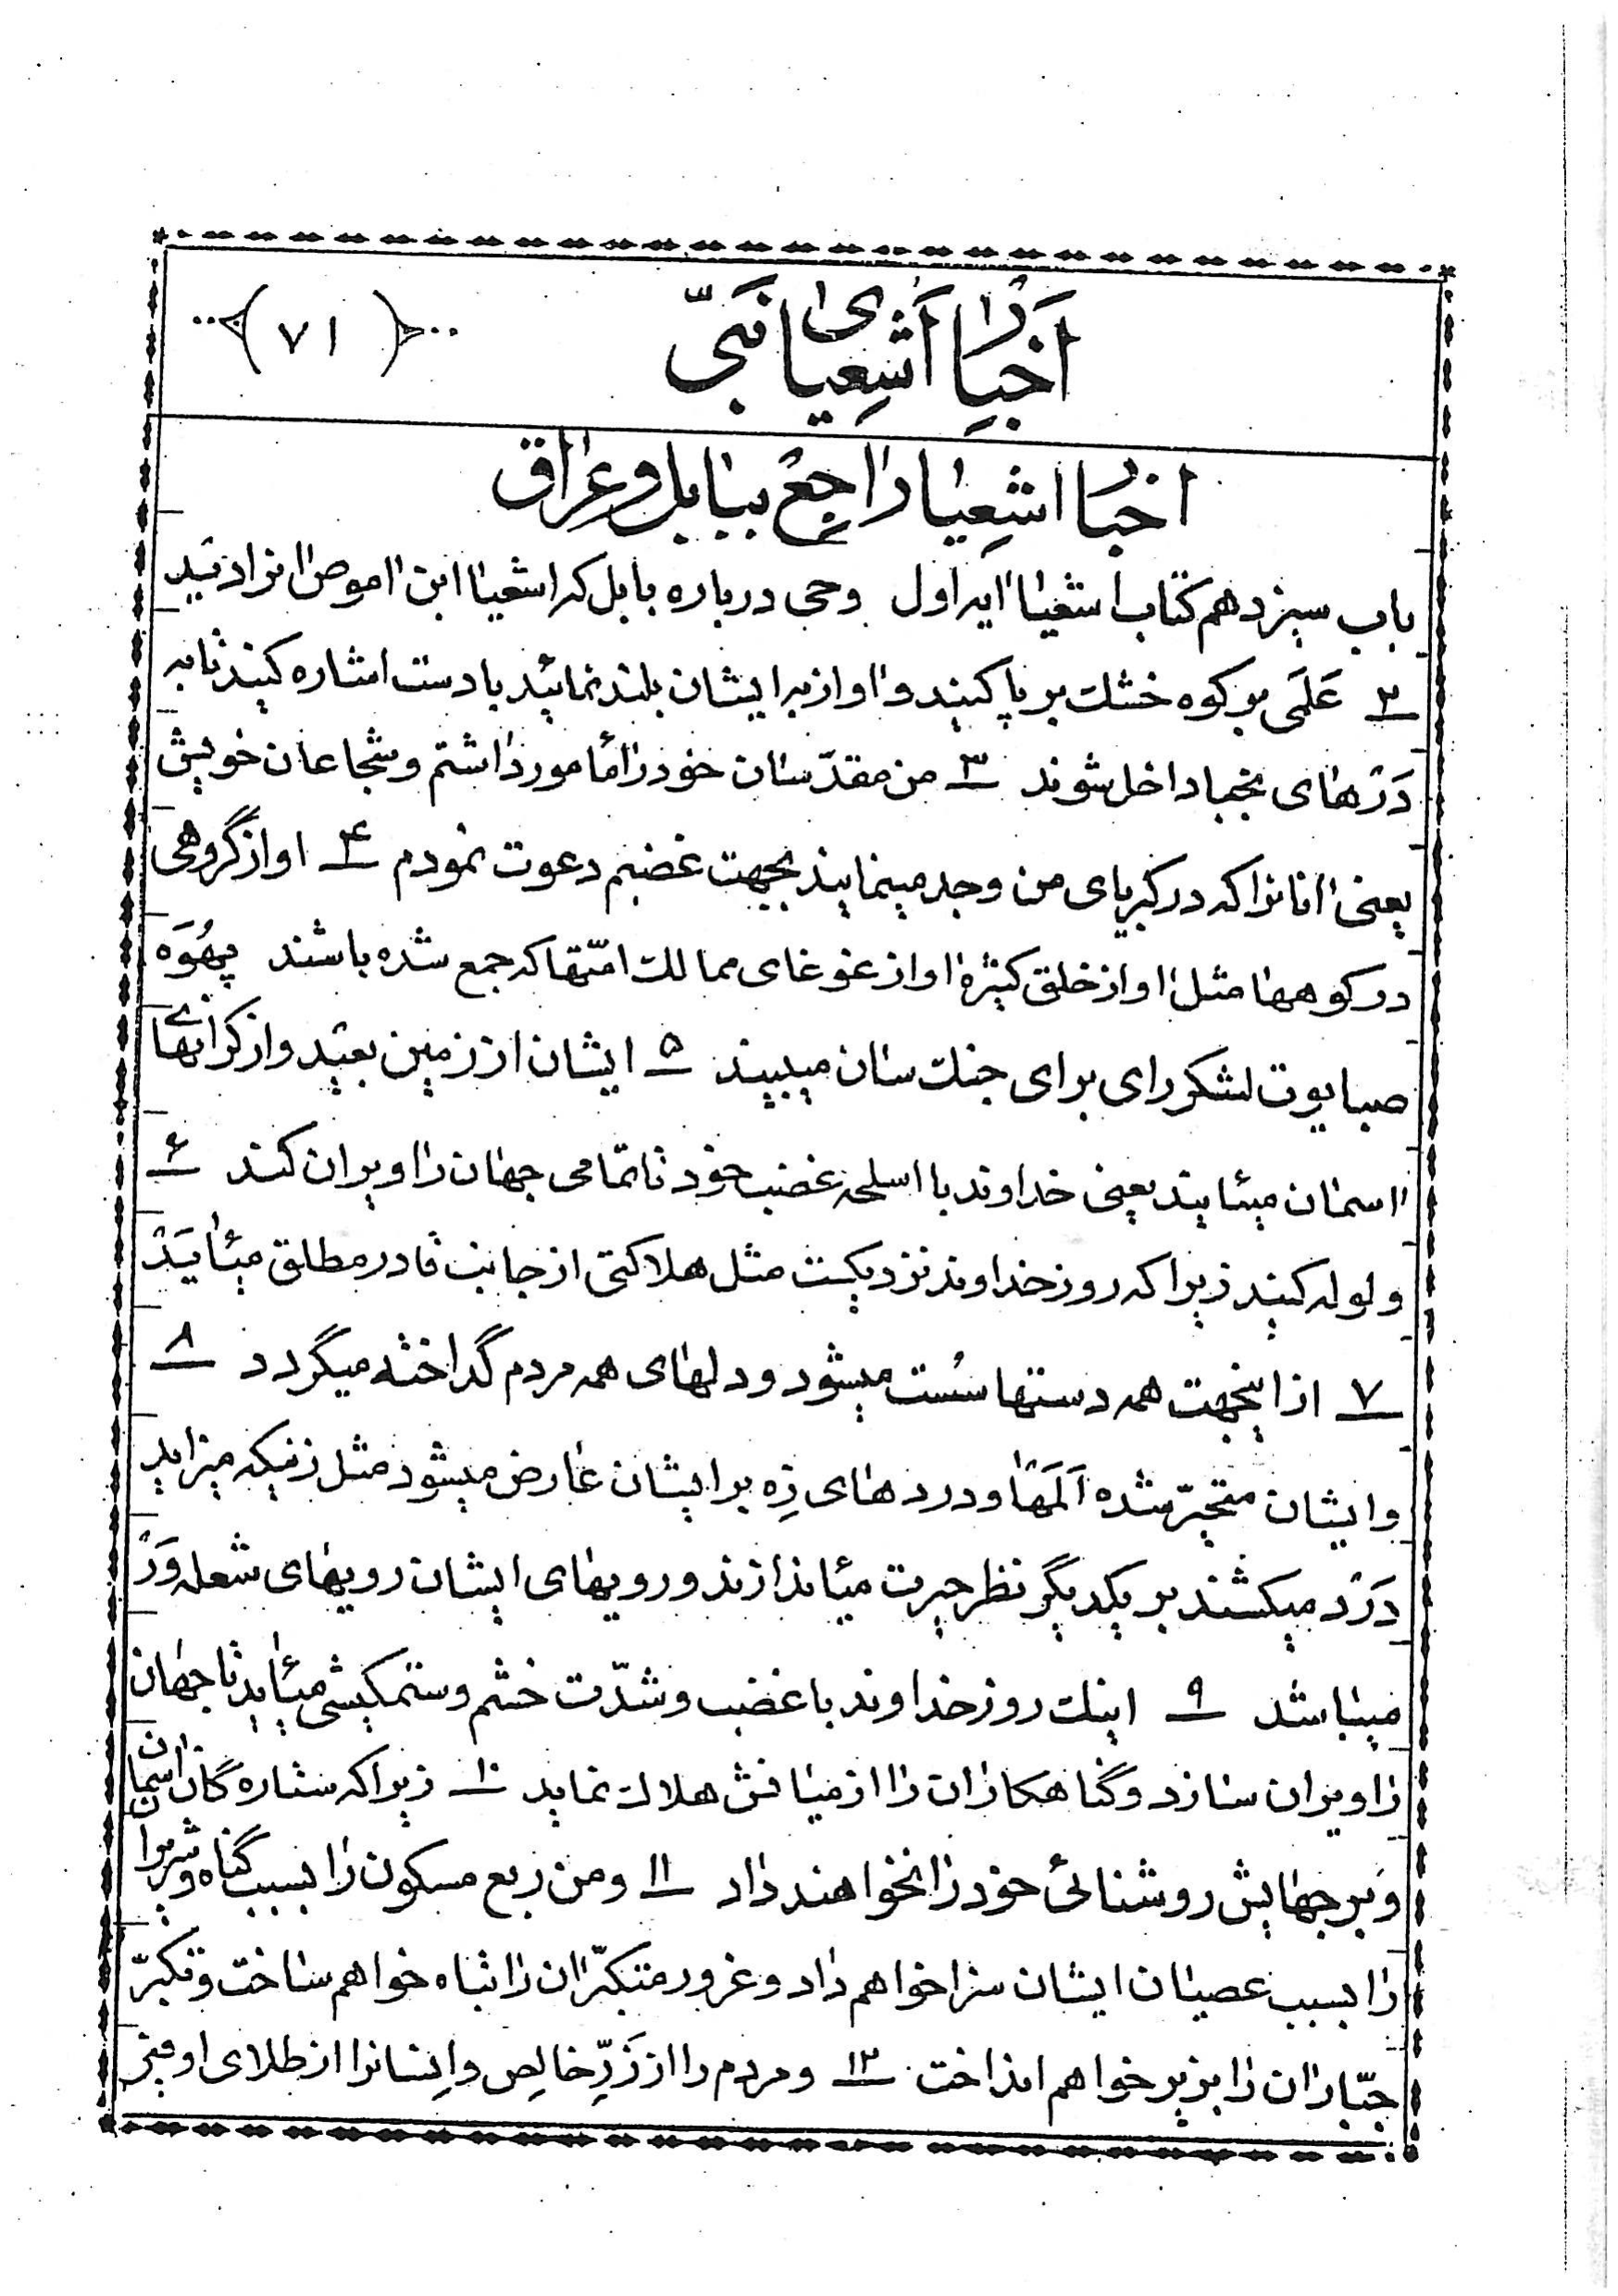 اَخبارِ اَشعِیای نَبیّ
﴿۷۱﴾
اخبار اشعِیا راجِعُ ببابل و عراق
باب سیزدهم کتاب اشعیا ایه اول وحی درباره بابل که اشعیا ابن اموص انرا دید
۲ عَلَمی بر کوه خشک برپا کنید و اواز به ایشان بلند نمائید با دست اشاره کنید تا به
دَرهای نجبا داخل شوند ۳ من مقدّسان خود را مأمور داشتم و شجاعان خویش
یعنی انانرا که در کبریای من وجد مینمایند بجهت غضبم دعوت نمودم ۴ اواز گروهی
در کوهها مثل اواز خلق کثیره اواز غوغای ممالک امّتها که جمع شده باشند یهُوَه
صبایوت لشکر رای برای جنک سان میبیند ۵ ایشان از زمین بعید و از کرانهای
اسمان میئایند یعنی خداوند با اسلحه غضب خود تا تمامی جهان را ویران کند ۶
ولوله کنید زیرا که روز خداوند نزدیکست مثل هلاکتی از جانب قادر مطلق میئایَد
۷ از اینجهت همه دستها سُست میشود و دلهای همه مردم گداخته میگردد ۸
و ایشان متحیّر شده اَلَمها و دردهای زِه بر ایشان عارض میشود مثل زنیکه میزاید
دَرد میکشند بر یکدیگر نظر حیرت میئاندازند و رویهای ایشان رویهای شعله وَر
میباشد ۹ اینک روز خداوند با غضب و شدّت خشم و ستمکیشی میئاید تا جهان
را ویران سازد و گناهکاران را از میانش هلاک نماید ۱۰ زیرا که ستاره گان اسمان
وَ برجهایش روشنائی خود را نخواهند داد ۱۱ و من ربع مسکون را بسبب گناه و شریران
را بسبب عصیان ایشان سزا خواهم داد و غرور متکبّران را تباه خواهم ساخت و تکبّر
جبّاران را بزیر خواهم انداخت ۱۲ و مردم را از زَرِّ خالِص و اِنسانرا از طلای اوفیر